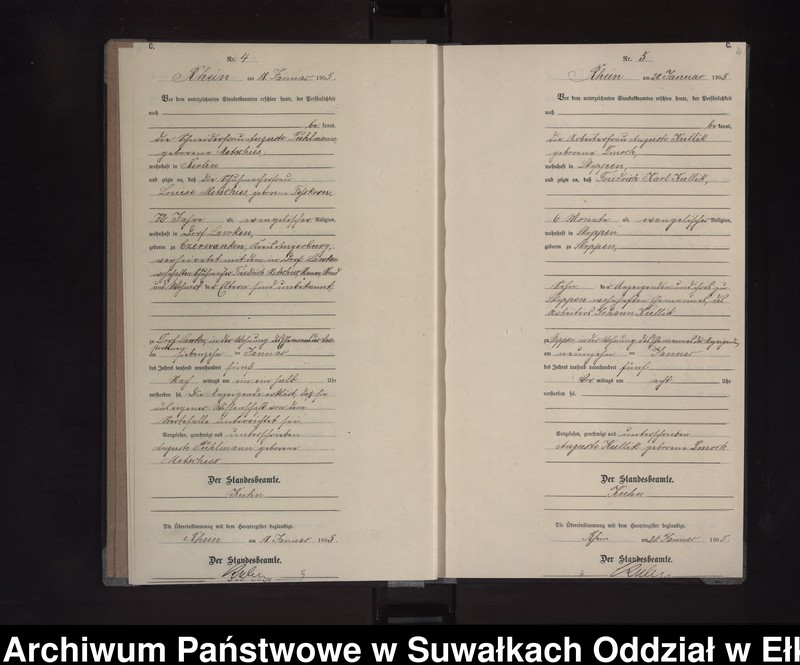 C.
Nr. 4
Rhein am 18 Januar 1905.
Vor dem unterzeichneten Standesbeamten erschien heute, der Persönlichkeit
nach
be kannt,
die Schneiderfrau Auguste Pühlmann
geborene Metschies
wohnhaft in Berlin
und zeigte an, daß die Schuhmacherfrau
Louise Metschies geborene
72 Jahre a. evangelischer Religion,
wohnhaft in Dorf Lawken,
geboren zu Czerwanken, Kreis Angerburg,
verheiratet mit dem in Dorf Lawken
wohnhaften Schuhmacher Friedrich Metschies, Namen, Stand
und Wohnort der Eltern sind unbekannt
zu Dorf Lawken, in der Wohnung
am siebenzehn ten Januar
des Jahres tausend neunhundert fünf
Nach mittags um ein ein halb Uhr
verstorben sei. Die Anzeigende erklärt, daß sie
aus eigener Wissenschaft von dem
Sterbefalle unterrichtet sei
Vorgelesen, genehmigt und unterschrieben
Auguste Pühlmann geborene
Metschies
Der Standesbeamte.
Kuhn
Die Übereinstimmung mit dem Hauptregister beglaubigt.
Rhein am 18 Januar 1905.
Der Standesbeamte.
C.
Nr. 5
Rhein am 20 Januar 1905.
Vor dem unterzeichneten Standesbeamten erschien heute, der Persönlichkeit
nach
be kannt,
die Arbeiterfrau Auguste Kullik
geborene
wohnhaft in Skoppen,
und zeigte an, daß Friedrich Karl Kullik,
6 Monate a. evangelischer Religion,
wohnhaft in Skoppen
geboren zu Skoppen,
Sohn der Anzeigenden und ihres zu
Skoppen wohnhaften Ehemannes, des
Arbeiters Johann Kullik
zu Skoppen in der Wohnung des Ehemannes der Anzeigenden,
am neunzehn ten Januar
des Jahres tausend neunhundert fünf
Vor mittags um acht Uhr
verstorben sei.
Vorgelesen, genehmigt und unterschrieben
Auguste Kullik geborene
Der Standesbeamte.
Kuhn
Die Übereinstimmung mit dem Hauptregister beglaubigt.
Rhein am 20 Januar 1905.
Der Standesbeamte.
Archiwum Państwowe w Suwałkach Oddział w Ełk